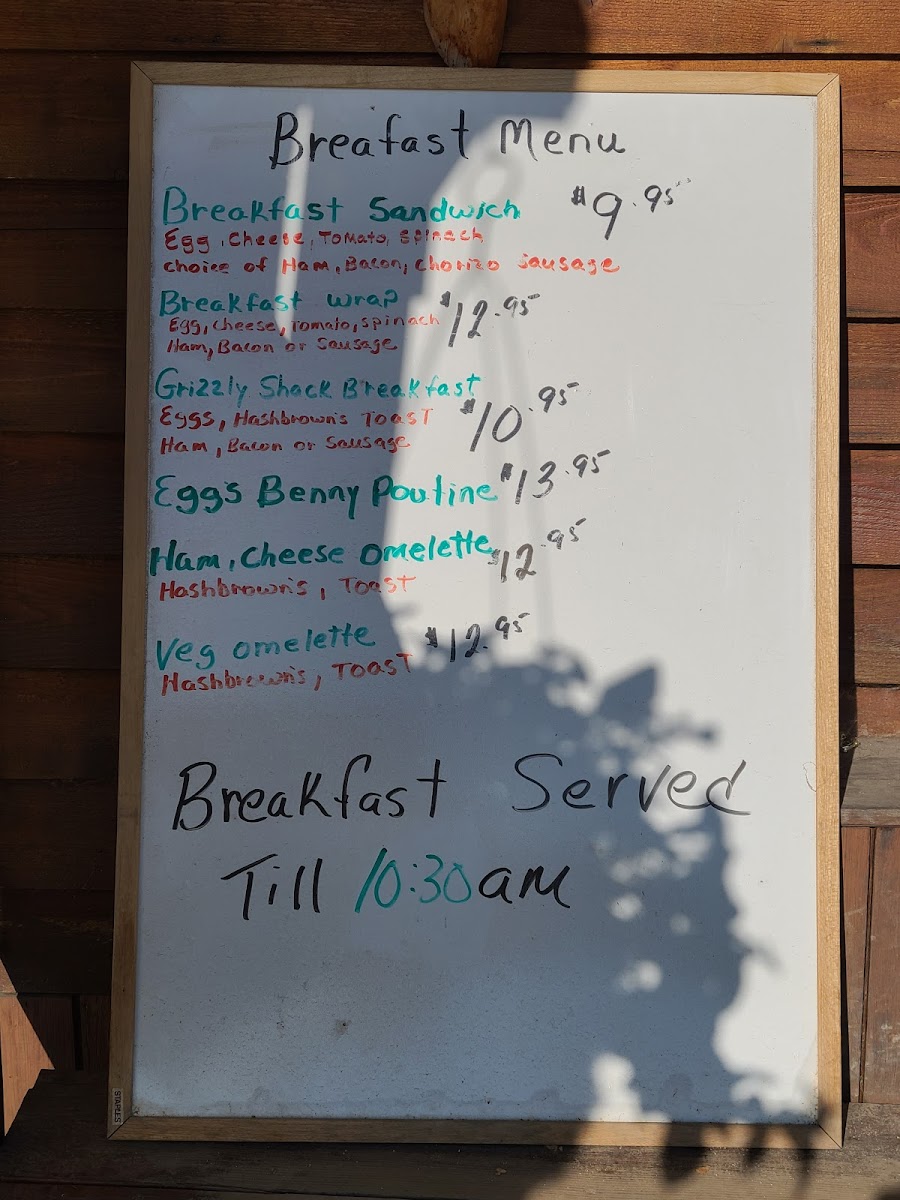 Breafast Menu
Breakfast Sandwich $9.95
Egg, Cheese, Tomato, Spinach
choice of Ham, Bacon, Chorizo Sausage
Breakfast wrap $12.95
Egg, Cheese, Tomato, Spinach
Ham, Bacon or Sausage
Grizzly Shack Breakfast $10.95
Eggs, Hashbrown's Toast
Ham, Bacon or Sausage
Egg's Benny Poutine $13.95
Ham, Cheese Omelette $12.95
Hashbrown's, Toast
Veg omelette $12.95
Hashbrown's, Toast
Breakfast Served
Till 10:30am
STAPLES